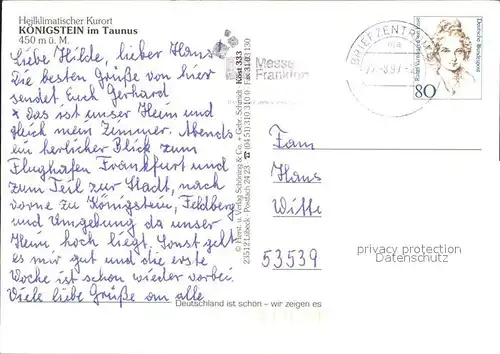 Heilklimatischer Kurort
KÖNIGSTEIN im Taunus
450 m ü. M.
Liebe Hilde, lieber Hans
Die besten Grüße von hier
sendet Euch Gerhard
x das ist unser Heim und
gleich mein Zimmer. Abends
ein herlicher Blick zum
Flughafen Frankfurt und
zum Teil zur Stadt, nach
vorne zu Königstein, Feldberg
und Umgebung da unser
Heim hoch liegt. Sonst geht
es mir gut und die erste
Woche ist schon wieder vorbei.
Viele liebe Grüße an alle
Deutschland ist schön – wir zeigen es
© Horst u. Verlag Schöning & Co. + Gebr. Schmidt
23512 Lübeck · Postfach 24 23 ☎ (04 51) 310 310
Messe
Frankfurt
BRIEFZENTRUM
80
Deutsche Bundespost
Fam
Hans
Witte
53539
privacy protection
Datenschutz